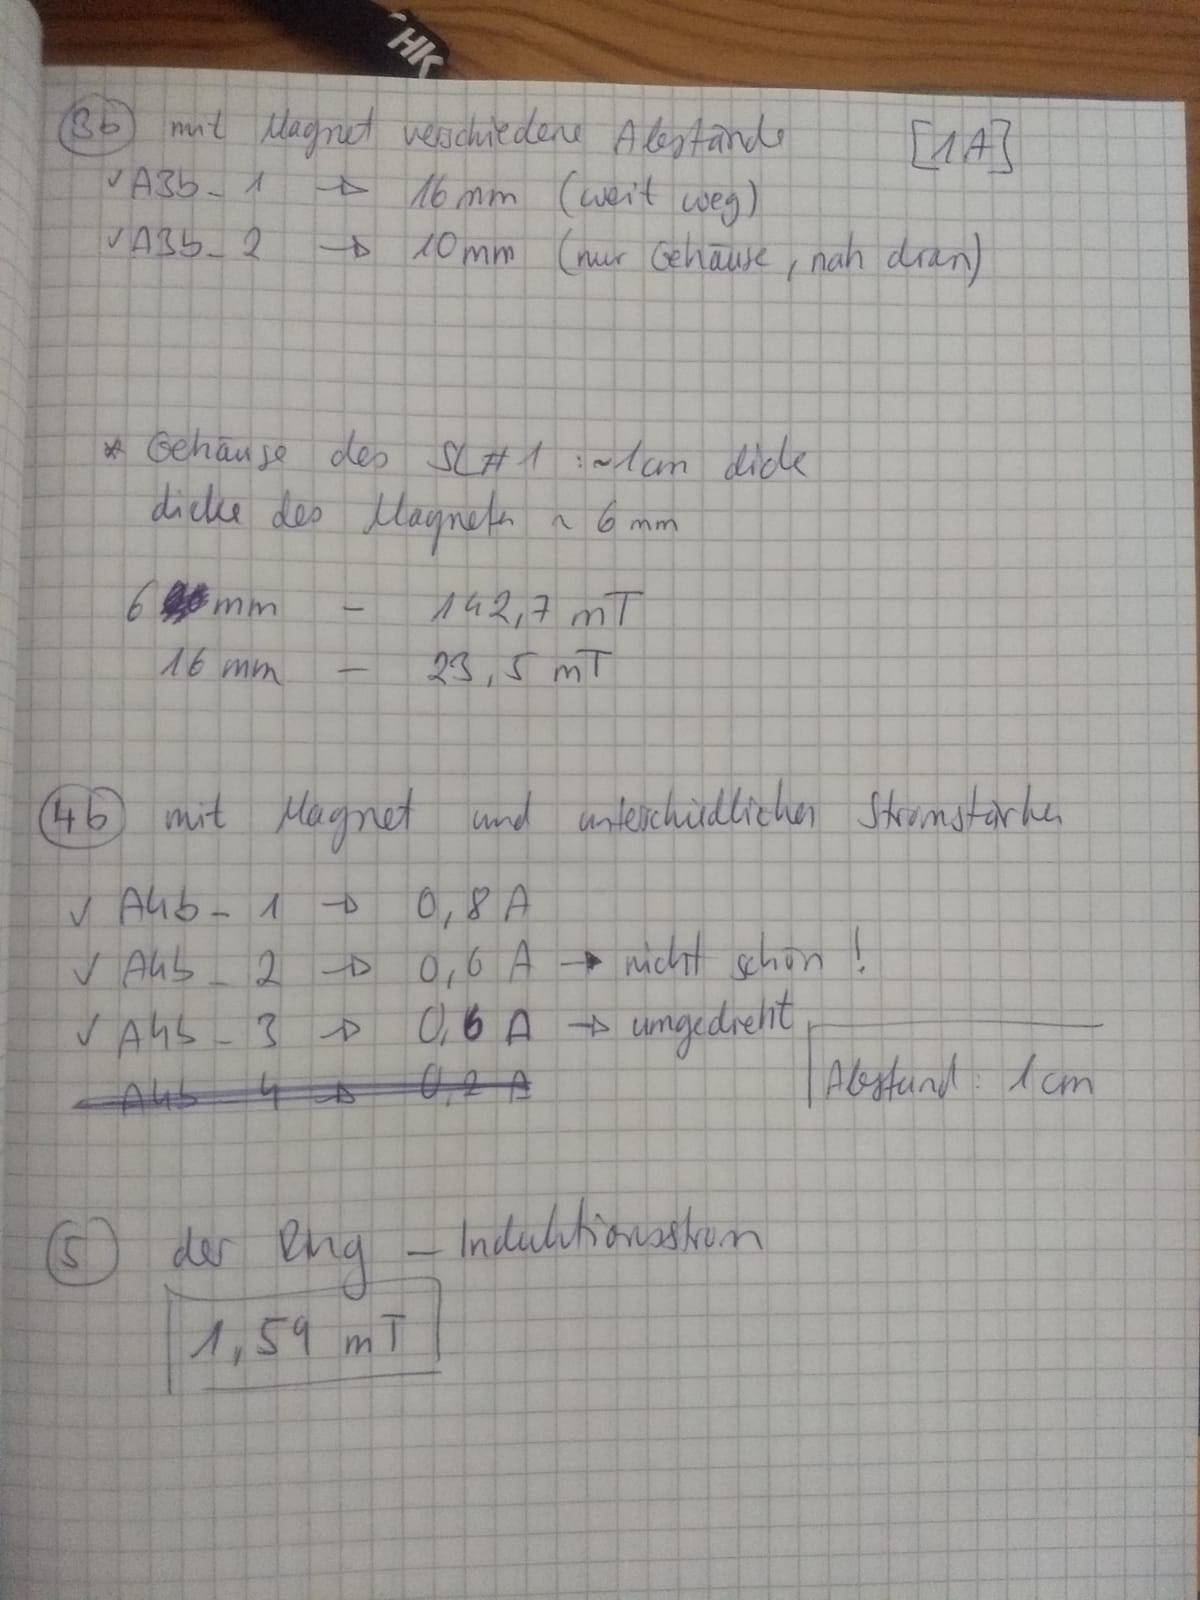 HK
3b mit Magnet verschiedene Abstände [1A]
✓ A3b_1 → 16mm (weit weg)
✓ A3b_2 → 10mm (nur Gehäuse, nah dran)
* Gehäuse des SC#1 : ~1cm dick
dicke des Magneten ~ 6mm
6 mm – 142,7 mT
16 mm – 23,5 mT
4b mit Magnet und unterschiedlichen Stromstärken
✓ A4b_1 → 0,8 A
✓ A4b_2 → 0,6 A → nicht schön!
✓ A4b_3 → 0,6 A → umgedreht
A4b 4 → 0,2 A
Abstand: 1cm
5 der Ring – Induktionsstrom
1,59 mT